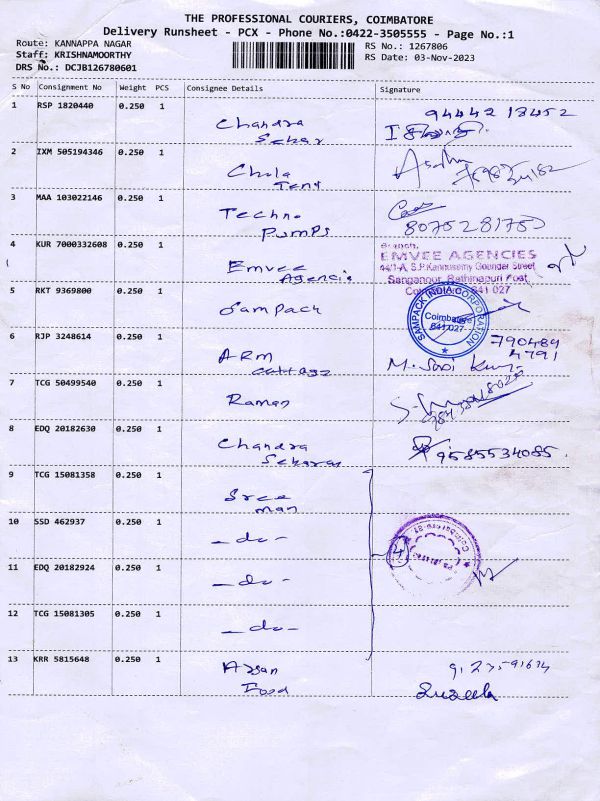 THE PROFESSIONAL COURIERS, COIMBATORE
Delivery Runsheet - PCX - Phone No.:0422-3505555 - Page No.:1
Route: KANNAPPA NAGAR
Staff: KRISHNAMOORTHY
DRS No.: DCJB126780601
RS No.: 1267806
RS Date: 03-Nov-2023
S No Consignment No Weight PCS Consignee Details Signature
1 RSP 1820440 0.250 1 Chandra Sekar
94442 18452
2 IXM 505194346 0.250 1 Chola Tent
3 MAA 103022146 0.250 1 Techno Pumps
4 KUR 7000332608 0.250 1 Emvee Agencie
Branch,
EMVEE AGENCIES
44/1-A, S.P.Kannusamy Gounder Street,
Sanganoor, Rathinapuri Post,
641 027
5 RKT 9369800 0.250 1 Sampack
SAMPACK INDIA CORPORATION
Coimbatore
641 027
6 RJP 3248614 0.250 1 ARM cottage
790489
4791
7 TCG 50499540 0.250 1 Raman
8 EDQ 20182630 0.250 1 Chandra Sekaran
9585534085
9 TCG 15081358 0.250 1 Sree man
10 SSD 462937 0.250 1 -do-
4
11 EDQ 20182924 0.250 1 -do-
12 TCG 15081305 0.250 1 -do-
13 KRR 5815648 0.250 1 Food